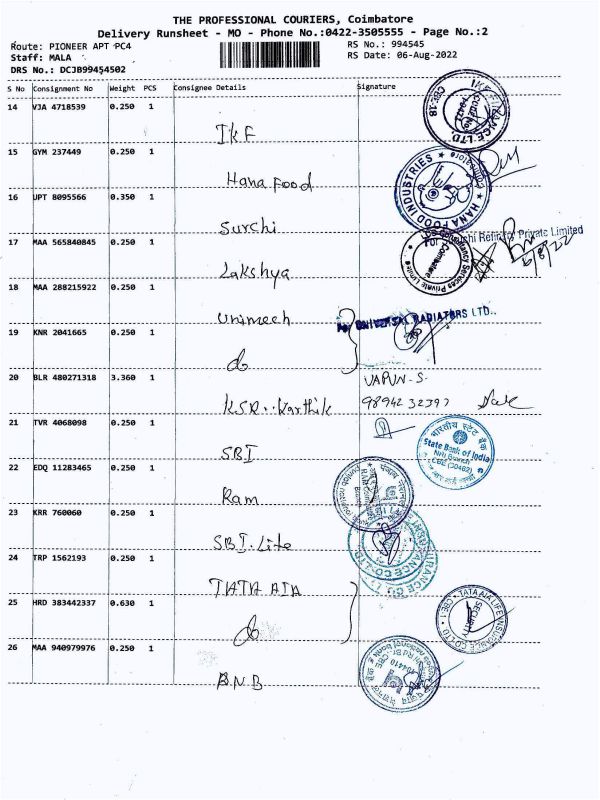 THE PROFESSIONAL COURIERS, Coimbatore
Delivery Runsheet - MO - Phone No.:0422-3505555 - Page No.:2
Route: PIONEER APT PC4 RS No.: 994545
Staff: MALA RS Date: 06-Aug-2022
DRS No.: DCJB99454502
S No Consignment No Weight PCS Consignee Details Signature
14 VJA 4718539 0.250 1
IKF
15 GYM 237449 0.250 1
Hana Food
HANA FOOD INDUSTRIES
Coimbatore
16 UPT 8095566 0.350 1
Surchi
For Private Limited
17 MAA 565840845 0.250 1
Lakshya
Consultancy Services Private Limited
Coimbatore
6/8/22
18 MAA 288215922 0.250 1
Unimech
For UNIVERSAL RADIATORS LTD.,
19 KNR 2041665 0.250 1
do
20 BLR 480271318 3.360 1
KSR..Karthik
VARUN.S.
9894232397
21 TVR 4068098 0.250 1
SBI
भारतीय स्टेट बैंक
State Bank of India
NRI Branch
CBE (30482)
22 EDQ 11283465 0.250 1
Ram
23 KRR 760060 0.250 1
SBI.Lite
24 TRP 1562193 0.250 1
TATA AIA
25 HRD 383442337 0.630 1
do
TATA AIA LIFE INSURANCE CO LTD
CBE-1
SECURITY
26 MAA 940979976 0.250 1
BNB